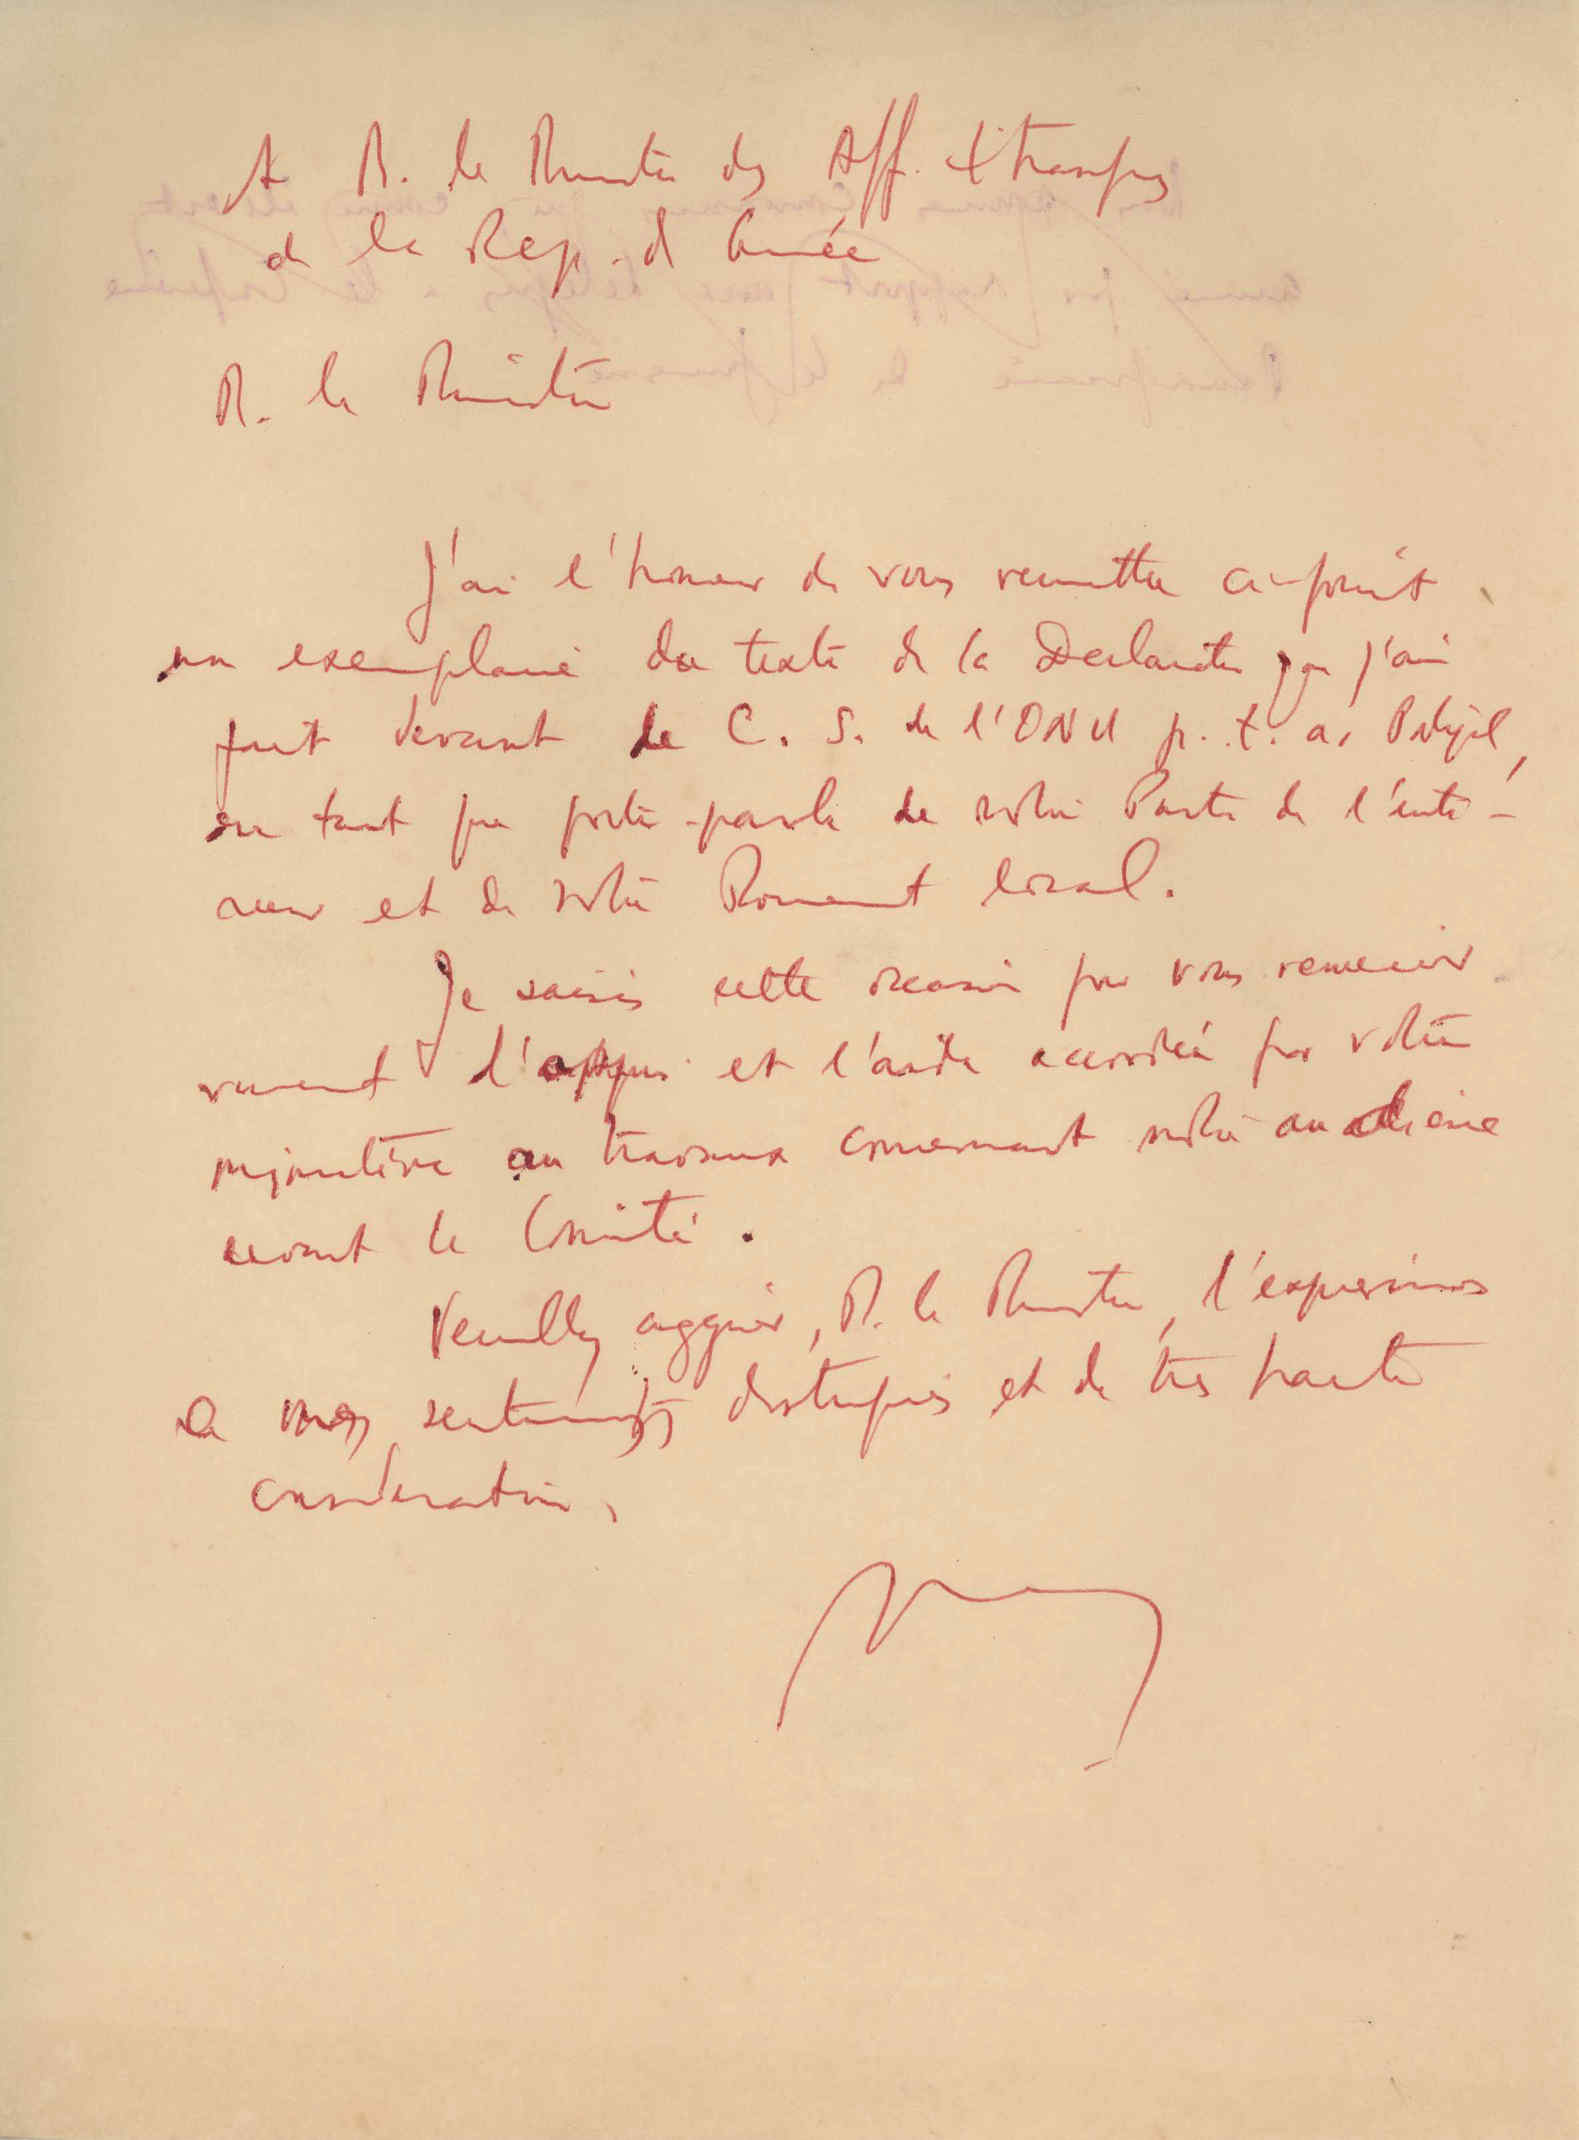 A M. le Ministre des Aff. Etrangères
de la Rep. de Guinée
M. le Ministre
J'ai l'honneur de vous remettre ci-joint
un exemplaire du texte de la Déclaration que j'ai
fait devant le C. S. de l'ONU p. t. as Portug.,
en tant que porte-parole de notre Parti de l'inté-
rieur et de notre Mouvement local.
Je saisis cette occasion pour vous remercier
vivement de l'appui et l'aide accordée par votre
ministère aux travaux concernant notre audience
devant le Comité.
Veuillez agréer, M. le Ministre, l'expression
de mes sentiments distingués et de très haute
considération.